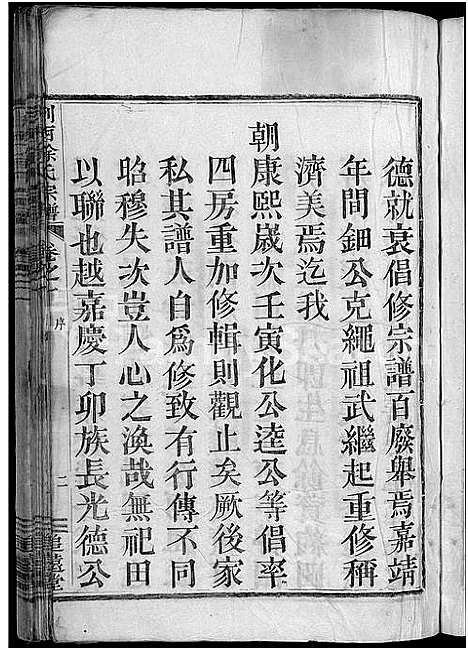 德就衰倡修宗譜百廢舉焉嘉靖
年間鈿公克繩祖武繼起重修稱
濟美焉迄我
朝康熙嵗次壬寅化公逵公等倡率
四房重加修輯則觀止矣厥後家
私其譜人自爲修致有行傳不同
昭穆失次豈人心之渙哉無祀田
以聯也越嘉慶丁卯族長光德公
徐氏宗譜
卷之一
序
二
追遠堂